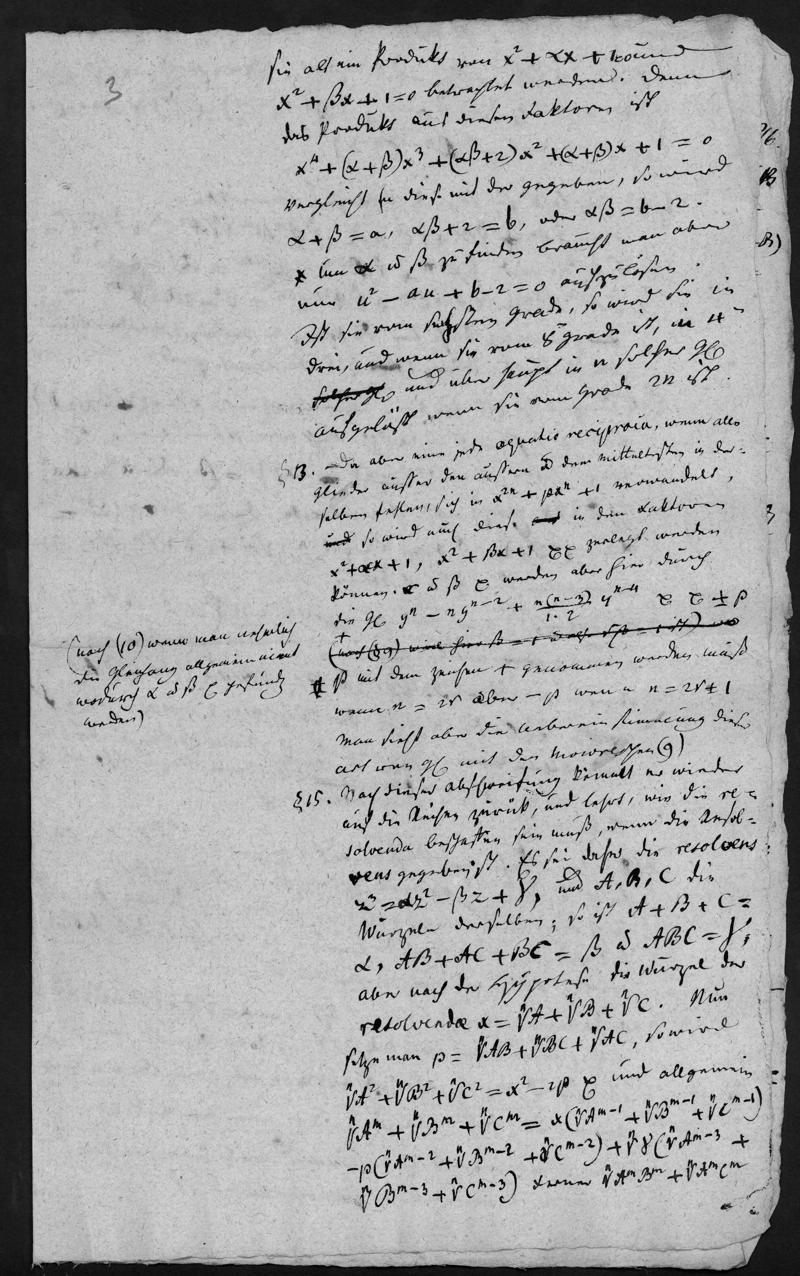 3
sie als ein Produkt von x² + αx + 1 = 0 und
x² + βx + 1 = 0 betrachtet werden. Denn
das Produkt aus diesen Faktoren ist
x⁴ + (α+β)x³ + (αβ+2)x² + (α+β)x + 1 = 0
vergleicht man diese mit der gegeben, so wird
α + β = a, αβ + 2 = b, oder αβ = b − 2.
um α u β zu finden braucht man aber
nur u² − au + b − 2 = 0 aufzulösen.
Ist sie vom sechsten Grade, so wird sie in
drei, und wenn sie vom 8 Grade ist, in 4
und überhaupt in n solcher
aufgelöst wenn sie vom Grade 2n ist.
§ 13. Da aber eine jede aequatio reciproca, wenn alle
Glieder ausser den äussern u dem mittelsten in der-
selben fehlen, sich in x²ⁿ + pxⁿ + 1 verwandelt,
so wird auch diese in den Faktoren
x² + αx + 1, x² + βx + 1 zerlegt werden
können. α u β werden aber hier durch
die yⁿ − nyⁿ⁻² + n(n−3)/1·2 yⁿ⁻⁴ ± p
(nach (10) wenn man nehmlich
die Gleichung allgemein nimmt
wodurch α u β gefunden
werden)
p mit dem Zeichen + genommen werden muß
wenn n = 2r aber − p wenn n = 2r + 1
Man sieht aber die Uebereinstimmung dieser
art von mit den Moivreschen (9)
§ 15. Nach dieser Abschweifung kommt er wieder
auf die zurück, und lehrt, wie die re-
solvenda beschaffen sein muß, wenn die Resol-
vens gegeben ist. Es sei daher die resolvens
z³ = αz² − βz + γ, und A, B, C die
Wurzeln derselben; so ist A + B + C =
α, AB + AC + BC = β u ABC = γ,
aber nach der Hypothese die Wurzel der
resolvendae x = ⁿ√A + ⁿ√B + ⁿ√C. Nun
setze man p = ⁿ√AB + ⁿ√BC + ⁿ√AC, so wird
ⁿ√A² + ⁿ√B² + ⁿ√C² = x² − 2p und allgemein
ⁿ√Aᵐ + ⁿ√Bᵐ + ⁿ√Cᵐ = x(ⁿ√Aᵐ⁻¹ + ⁿ√Bᵐ⁻¹ + ⁿ√Cᵐ⁻¹)
−p(ⁿ√Aᵐ⁻² + ⁿ√Bᵐ⁻² + ⁿ√Cᵐ⁻²) + ⁿ√γ(ⁿ√Aᵐ⁻³ +
ⁿ√Bᵐ⁻³ + ⁿ√Cᵐ⁻³) Ferner ⁿ√AᵐBᵐ + ⁿ√AᵐCᵐ